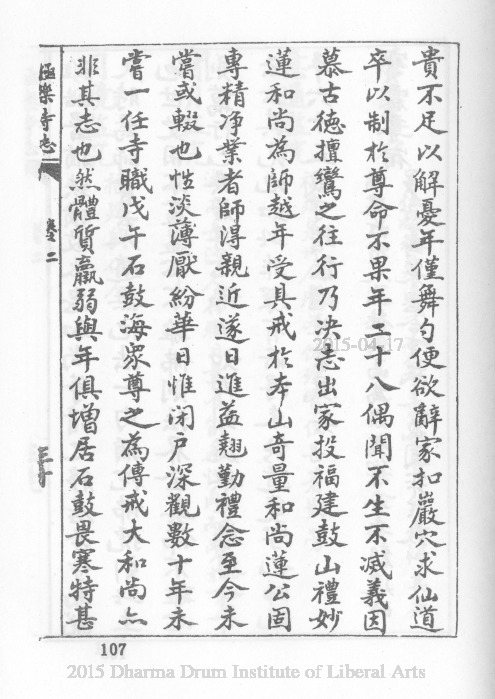 貴不足以解憂年僅舞勺便欲辭家扣巖穴求仙道
卒以制於尊命不果年二十八偶聞不生不滅義因
慕古德擅鸞之往行乃決志出家投福建鼓山禮妙
蓮和尚為師越年受具戒於本山奇量和尚蓮公固
專精淨業者師得親近遂日進益翹勤禮念至今未
嘗或輟也性淡薄厭紛華日惟閉戶深觀數十年未
嘗一任寺職戊午石鼓海眾尊之為傳戒大和尚亦
非其志也然體質羸弱與年俱增居石鼓畏寒特甚
極樂寺志
卷之二
三十
107
2015-04-17
2015 Dharma Drum Institute of Liberal Arts